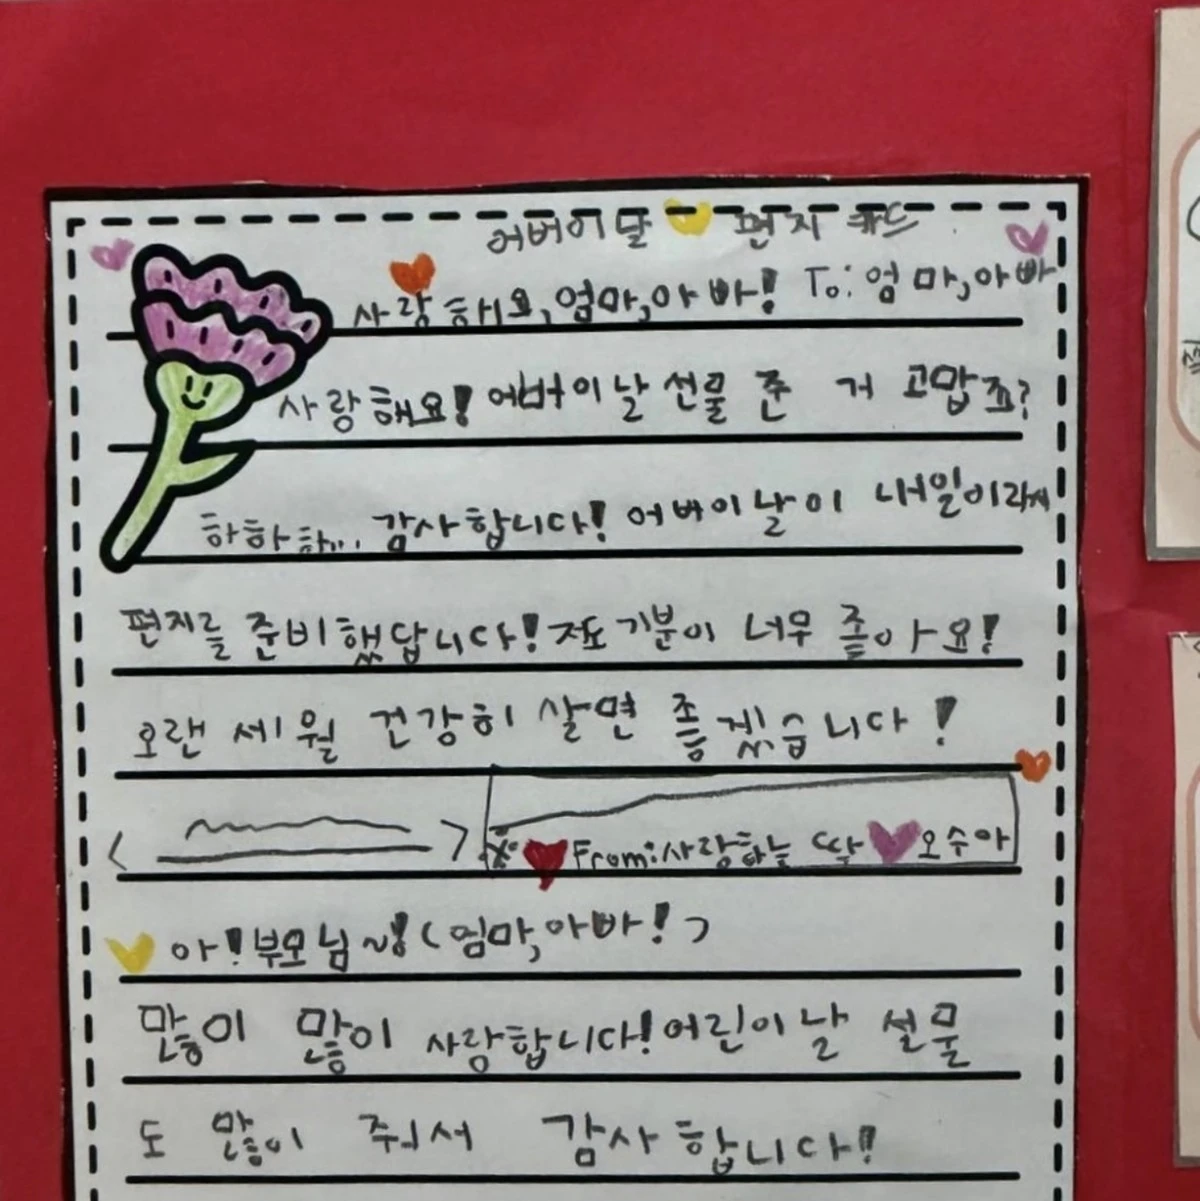 어버이달 편지 카드
사랑해요, 엄마, 아빠! To: 엄마, 아빠
사랑해요! 어버이날 선물 준 거 고맙죠?
하하하... 감사합니다! 어버이날이 내일이라서
편지를 준비했답니다! 저도 기분이 너무 좋아요!
오랜 세월 건강히 살면 좋겠습니다!
From: 사랑하는 딸 오수아
아! 부모님~! (엄마, 아빠!)
많이 많이 사랑합니다! 어린이날 선물
도 많이 줘서 감사합니다!